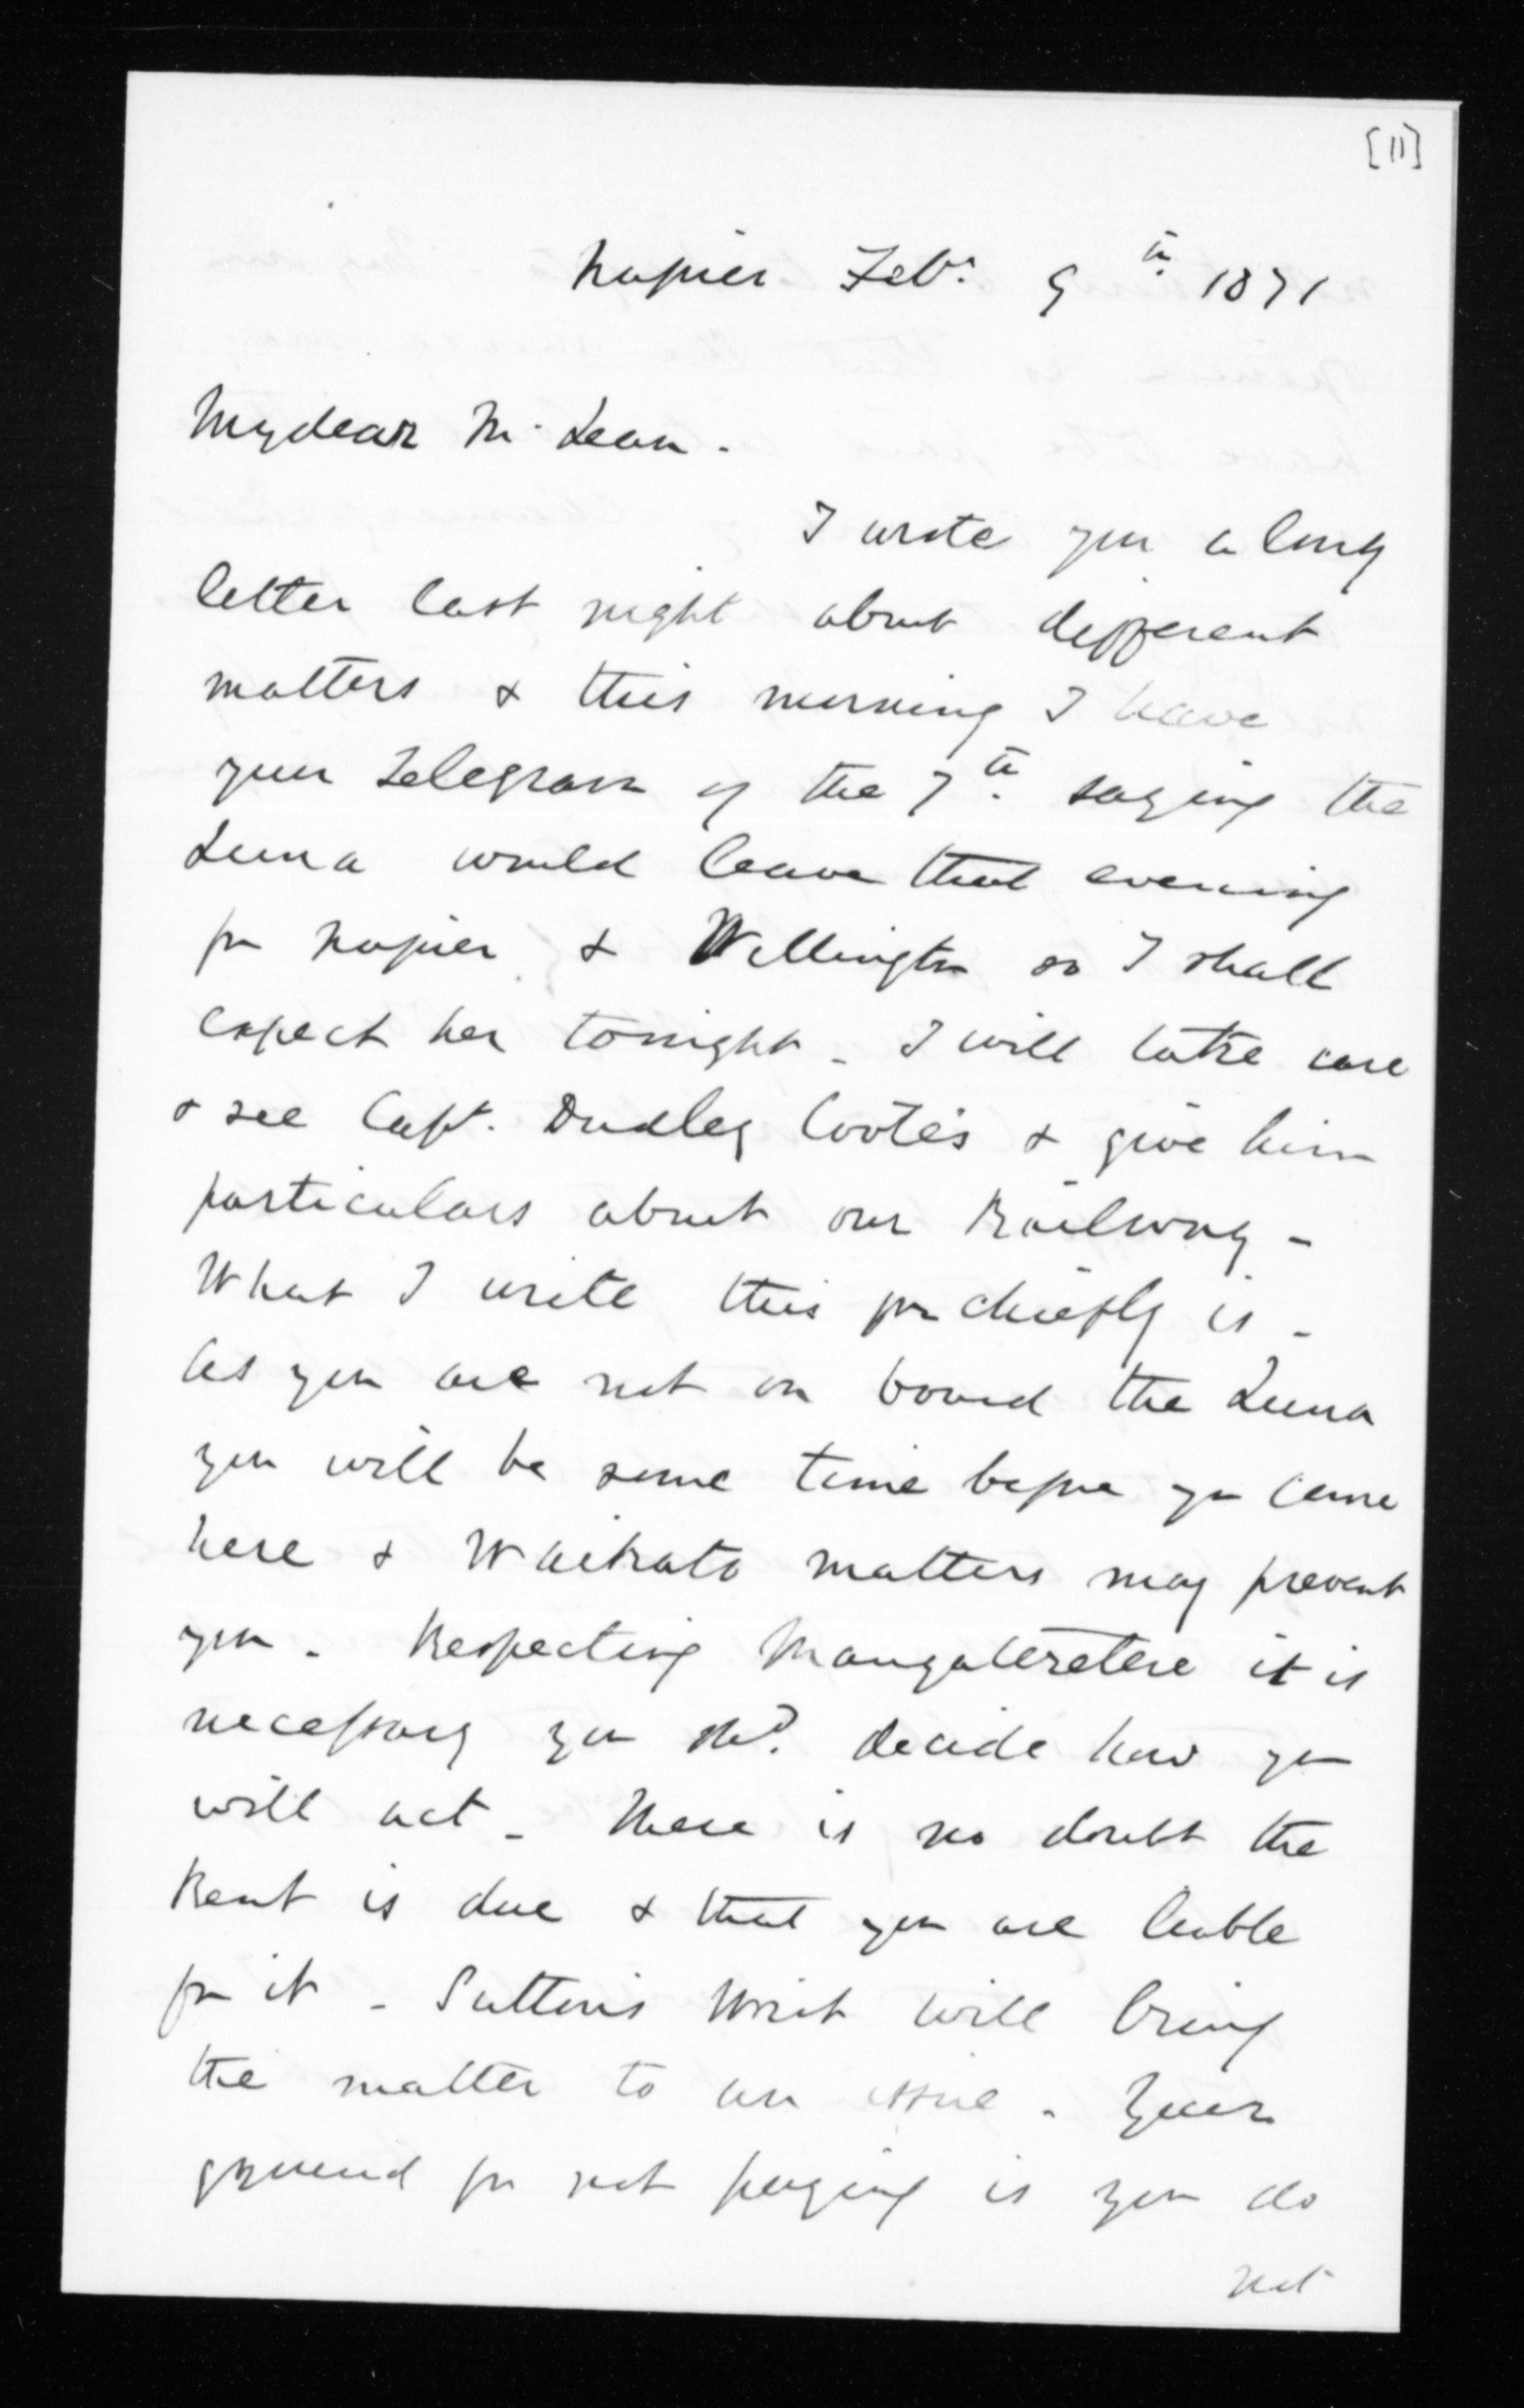 [11]
Napier Feby. 9th. 1871
My dear McLean.
I wrote you a long
letter last night about different
matters & this morning I have
your Telegram of the 7th. saying the
Luna would leave that evening
for Napier & Wellington so I shall
expect her tonight - I will take care
& see Capt. Dudley Coote's & give him
particulars about our Railway -
What I write this for chiefly is -
As you are not on board the Luna
you will be some time before you come
here & Waikato matters may prevent
you - Respecting Mangateretere it is
necessary you shd. decide how you
will act - There is no doubt the
Rent is due & that you are liable
for it - Sutton's Writ will bring
the matter to an issue - Your
ground for not paying is you do
not